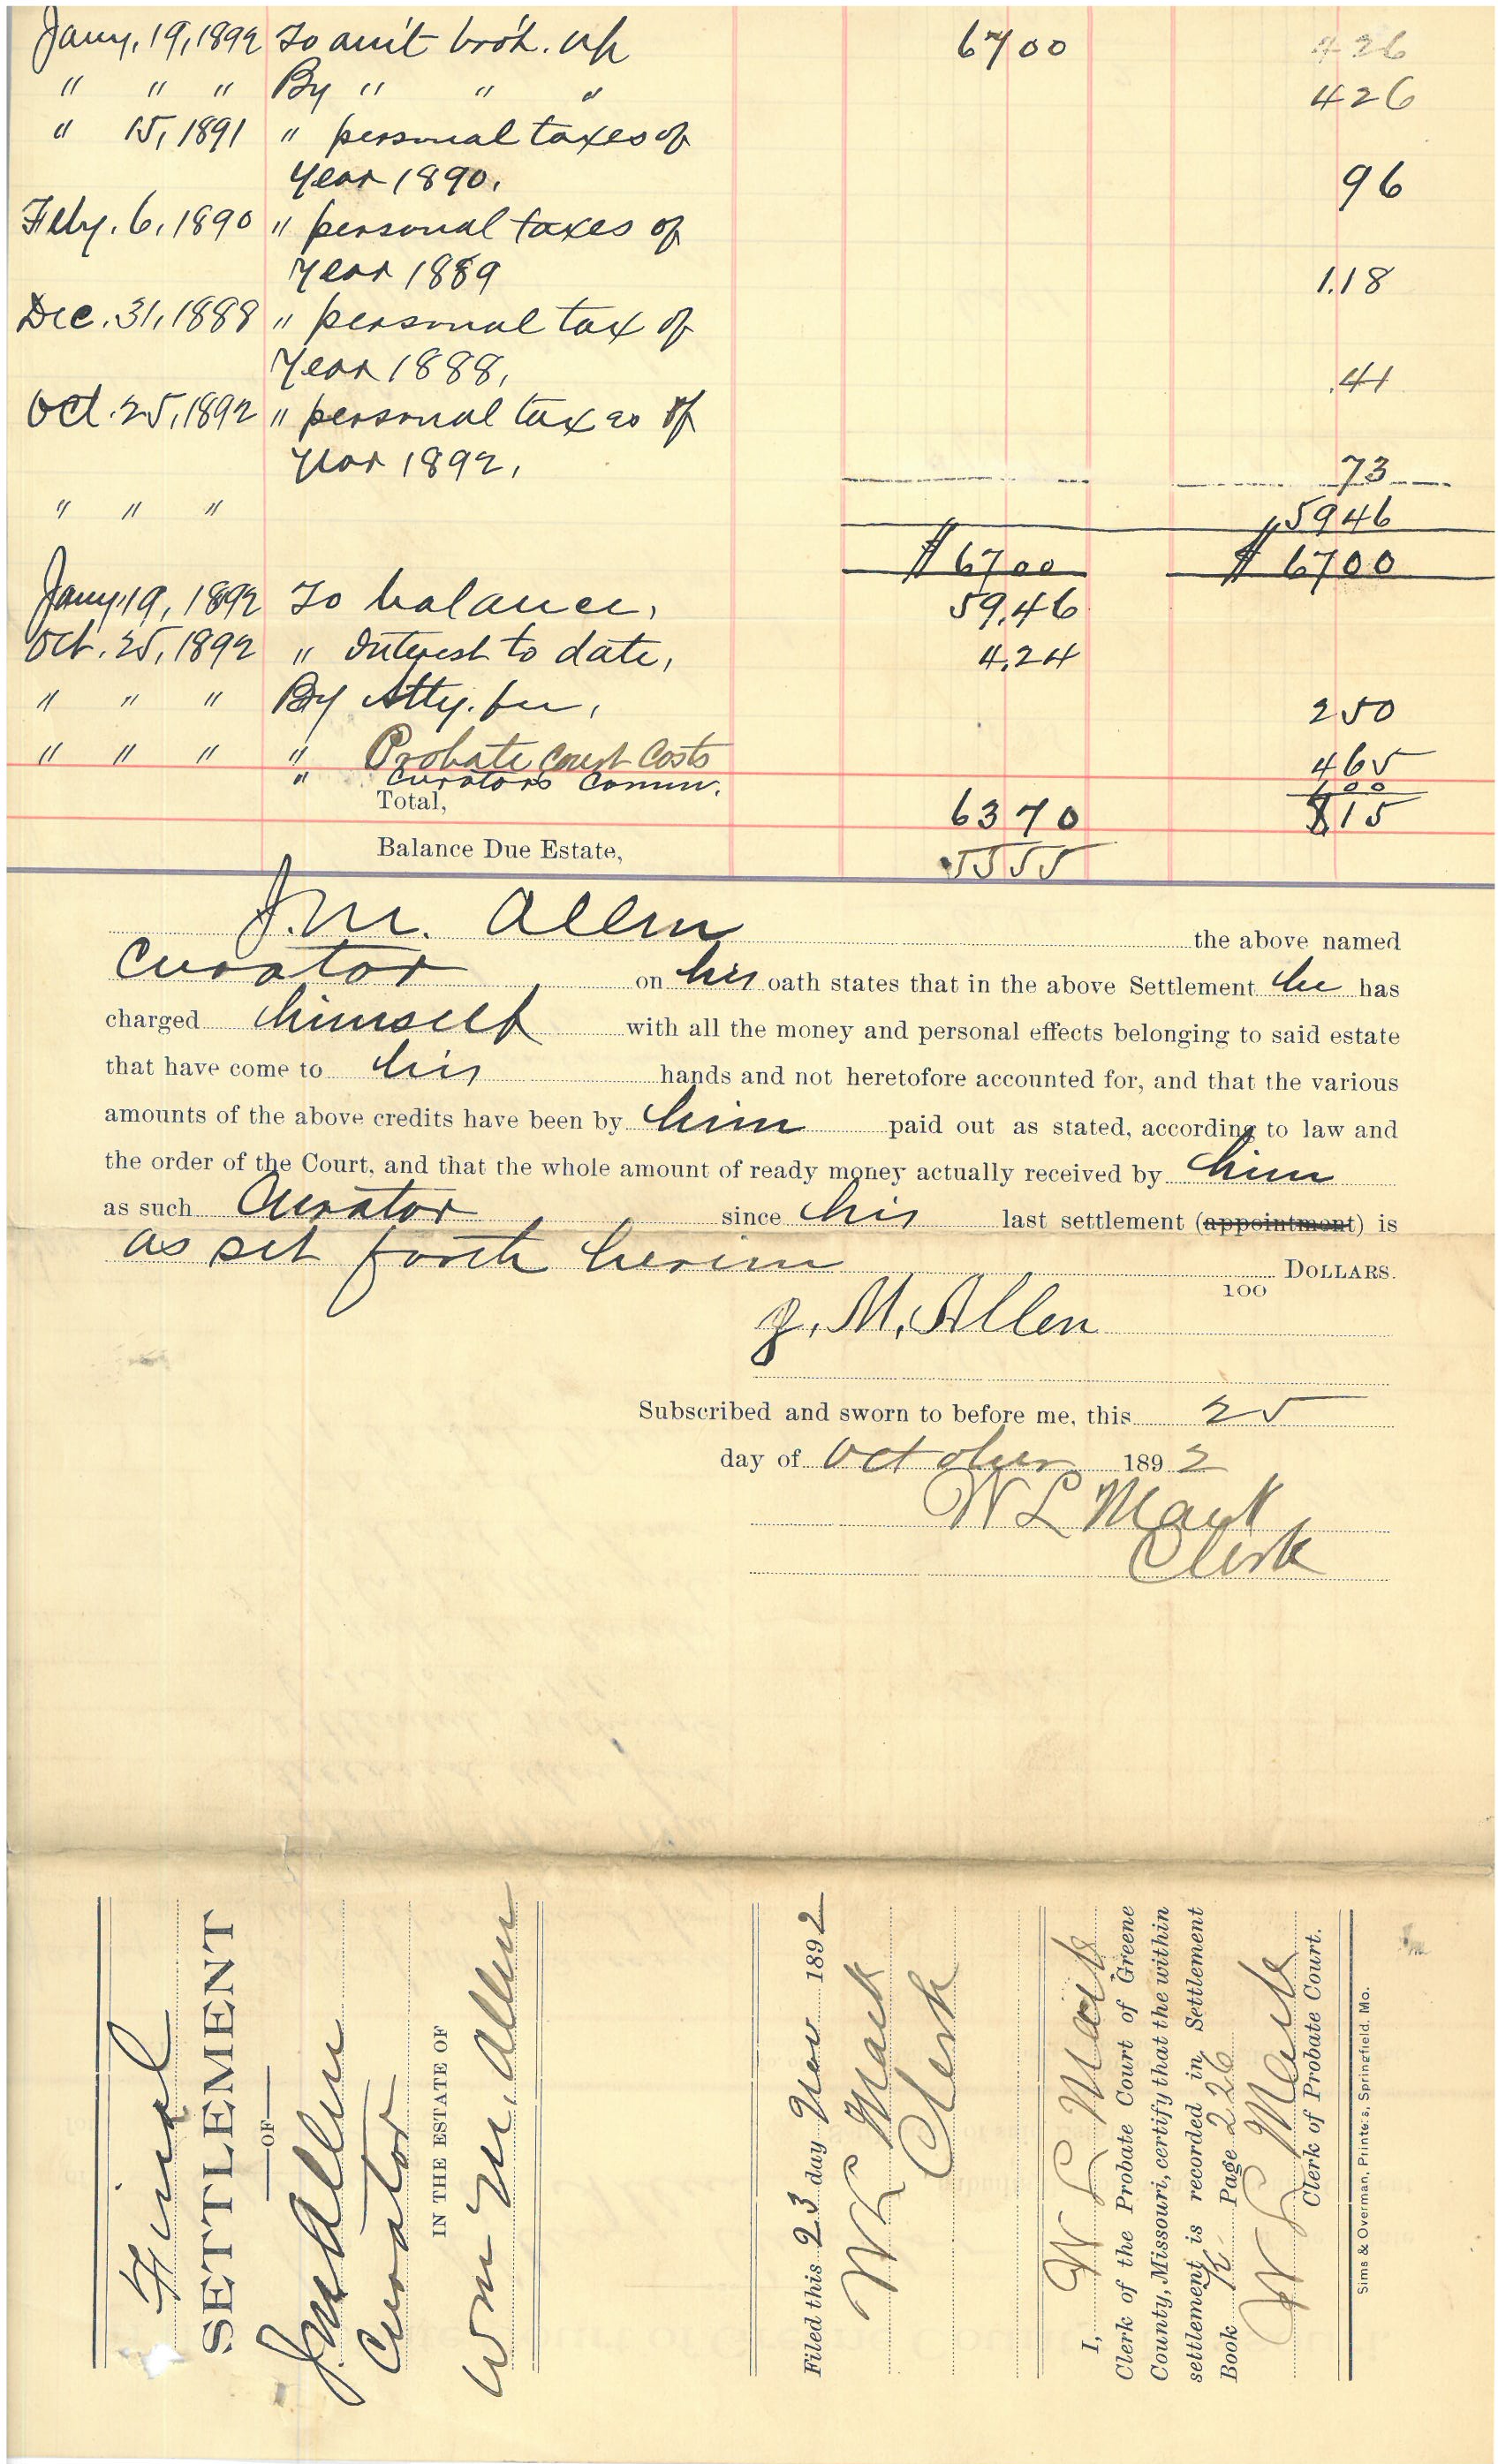 Jany. 19, 1892 To am't bro't. up 67 00 4 26
" " " By " " " 4 26
" 15, 1891 " personal taxes of
Year 1890. 96
Feby. 6, 1890 " personal taxes of
Year 1889 1.18
Dec. 31, 1888 " personal tax of
Year 1888, .41
Oct. 25, 1892 " personal taxes of
Year 1892, 73
" " " 59 46
$ 67 00 $ 67 00
Jany. 19, 1892 To balance, 59.46
Oct. 25, 1892 " Interest to date, 4.24
" " " By Atty. fee, 2 50
" " " " Probate Court Costs 4 65
" Curators Comm. 1 00
Total, 63 70 8 15
Balance Due Estate, 55 55
J. M. Allen the above named
Curator on his oath states that in the above Settlement he has
charged himself with all the money and personal effects belonging to said estate
that have come to his hands and not heretofore accounted for, and that the various
amounts of the above credits have been by him paid out as stated, according to law and
the order of the Court, and that the whole amount of ready money actually received by him
as such Curator since his last settlement (appointment) is
as set forth herein DOLLARS.
100
J. M. Allen
Subscribed and sworn to before me, this 25
day of October 1892
W L Mack
Clerk
Final
SETTLEMENT
OF
J M Allen
Curator
IN THE ESTATE OF
Wm M. Allen
Filed this 23 day Nov 1892
W L Mack
Clerk
I, W L Mack
Clerk of the Probate Court of Greene
County, Missouri, certify that the within
settlement is recorded in Settlement
Book K Page 226
W L Mack
Clerk of Probate Court.
Sims & Overman, Printers, Springfield, Mo.